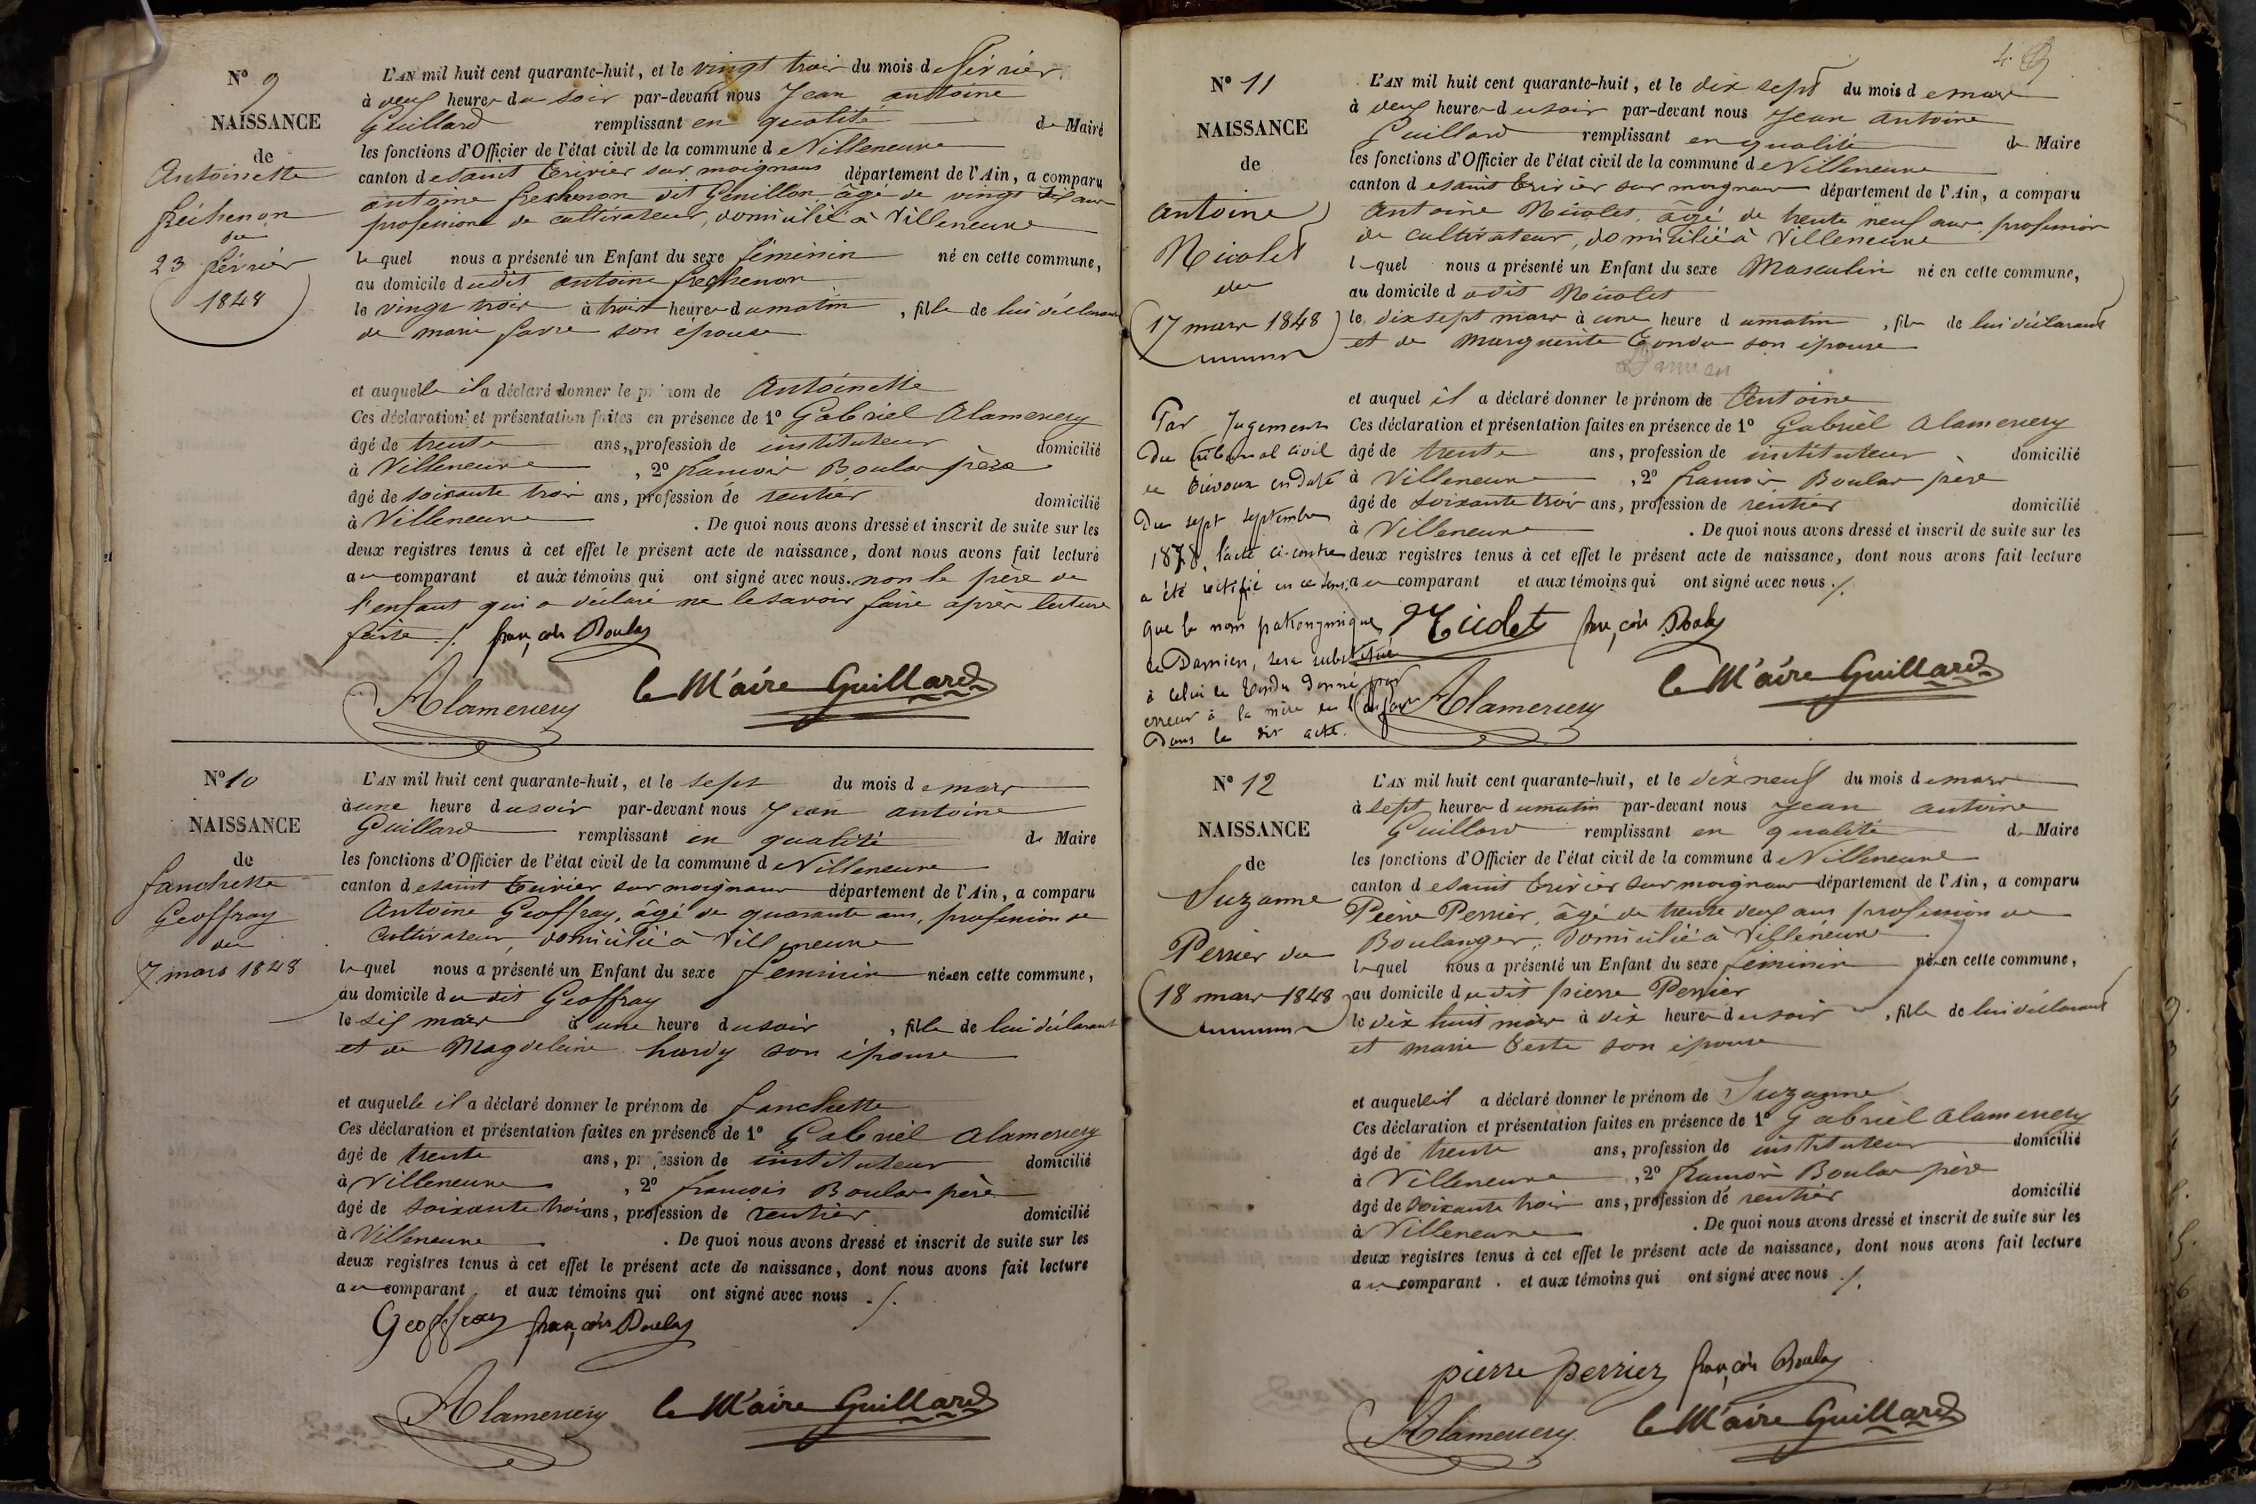 N° 9
NAISSANCE
de
Antoinette
fréchenon
du
23 février
1848
L'AN mil huit cent quarante-huit, et le vingt trois du mois de février
à deux heures du soir par-devant nous Jean antoine
Guillard remplissant en qualité de Maire
les fonctions d'Officier de l'état civil de la commune de Villeneuve
canton de saint trivier sur moignans département de l'Ain, a comparu
antoine frechenon dit Genillon âgé de vingt six ans
profession de cultivateur, domicilié à Villeneuve
lequel nous a présenté un Enfant du sexe féminin né en cette commune,
au domicile dudit antoine frechenon
le vingt trois à trois heures du matin, fille de lui déclarant
de marie favre son épouse
et auquelle il a déclaré donner le prénom de Antoinette
Ces déclaration et présentation faites en présence de 1° Gabriel Alamercery
âgé de trente ans, profession de instituteur domicilié
à Villeneuve, 2° françois Boulas père
âgé de soixante trois ans, profession de rentier domicilié
à Villeneuve. De quoi nous avons dressé et inscrit de suite sur les
deux registres tenus à cet effet le présent acte de naissance, dont nous avons fait lecture
au comparant et aux témoins qui ont signé avec nous. non le père de
l'enfant qui a déclaré ne le savoir faire après lecture
faite ./. françois Boulas
Alamercery le Maire Guillard
N° 10
NAISSANCE
de
fanchette
Geoffray
du
7 mars 1848
L'AN mil huit cent quarante-huit, et le sept du mois de mars
à une heure du soir par-devant nous Jean antoine
Guillard remplissant en qualité de Maire
les fonctions d'Officier de l'état civil de la commune de Villeneuve
canton de saint trivier sur moignans département de l'Ain, a comparu
Antoine Geoffray, âgé de quarante ans, profession de
cultivateur, domicilié à Villeneuve
lequel nous a présenté un Enfant du sexe feminin née en cette commune,
au domicile du dit Geoffray
le six mars à une heure du soir, fille de lui déclarant
et de Magdeleine hardy son épouse
et auquelle il a déclaré donner le prénom de fanchette
Ces déclaration et présentation faites en présence de 1° Gabriel Alamercery
âgé de trente ans, profession de instituteur domicilié
à Villeneuve, 2° françois Boulas père
âgé de soixante trois ans, profession de rentier domicilié
à Villeneuve. De quoi nous avons dressé et inscrit de suite sur les
deux registres tenus à cet effet le présent acte de naissance, dont nous avons fait lecture
au comparant et aux témoins qui ont signé avec nous ./.
Geoffray françois Boulas
Alamercery le Maire Guillard
N° 11
NAISSANCE
de
antoine
Nicolet
du
17 mars 1848
Par Jugement
du tribunal civil
de Trévoux en date
du sept septembre
1878, l'acte ci-contre
a été rectifié en ce sens,
que le nom patronymique
de Damien, sera substitué
à celui de Tondu donné par
erreur à la mère de l'enfant
dans le dit acte.
L'AN mil huit cent quarante-huit, et le dix sept du mois de mars
à deux heures du soir par-devant nous Jean Antoine
Guillard remplissant en qualité de Maire
les fonctions d'Officier de l'état civil de la commune de Villeneuve
canton de saint trivier sur moignans département de l'Ain, a comparu
Antoine Nicolet, âgé de trente neuf ans, profession
de cultivateur, domicilié à Villeneuve
lequel nous a présenté un Enfant du sexe Masculin né en cette commune,
au domicile dudit Nicolet
le dix sept mars à une heure du matin, fils de lui déclarant
et de Marguerite Tondu son épouse
Damien
et auquel il a déclaré donner le prénom de Antoine
Ces déclaration et présentation faites en présence de 1° Gabriel Alamercery
âgé de trente ans, profession de instituteur domicilié
à Villeneuve, 2° françois Boulas père
âgé de soixante trois ans, profession de rentier domicilié
à Villeneuve. De quoi nous avons dressé et inscrit de suite sur les
deux registres tenus à cet effet le présent acte de naissance, dont nous avons fait lecture
au comparant et aux témoins qui ont signé avec nous ./.
Nicolet françois Boulas
Alamercery le Maire Guillard
N° 12
NAISSANCE
de
Suzanne
Perrier du
18 mars 1848
L'AN mil huit cent quarante-huit, et le dix neuf du mois de mars
à sept heures du matin par-devant nous Jean antoine
Guillard remplissant en qualité de Maire
les fonctions d'Officier de l'état civil de la commune de Villeneuve
canton de saint trivier sur moignans département de l'Ain, a comparu
Pierre Perrier, âgé de trente deux ans profession de
Boulanger, domicilié à Villeneuve
lequel nous a présenté un Enfant du sexe feminin née en cette commune,
au domicile dudit pierre Perrier
le dix huit mars à dix heures du soir, fille de lui déclarant
et marie Teste son épouse
et auquelle il a déclaré donner le prénom de Suzanne
Ces déclaration et présentation faites en présence de 1° Gabriel Alamercery
âgé de trente ans, profession de instituteur domicilié
à Villeneuve, 2° françois Boulas père
âgé de soixante trois ans, profession de rentier domicilié
à Villeneuve. De quoi nous avons dressé et inscrit de suite sur les
deux registres tenus à cet effet le présent acte de naissance, dont nous avons fait lecture
au comparant. et aux témoins qui ont signé avec nous ./.
pierre perrier françois Boulas
Alamercery le Maire Guillard